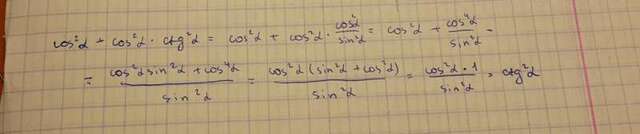 cos²α + cos²α · ctg²α = cos²α + cos²α · cos²α/sin²α = cos²α + cos⁴α/sin²α =
= (cos²α sin²α + cos⁴α)/sin²α = cos²α (sin²α + cos²α)/sin²α = cos²α · 1/sin²α = ctg²α